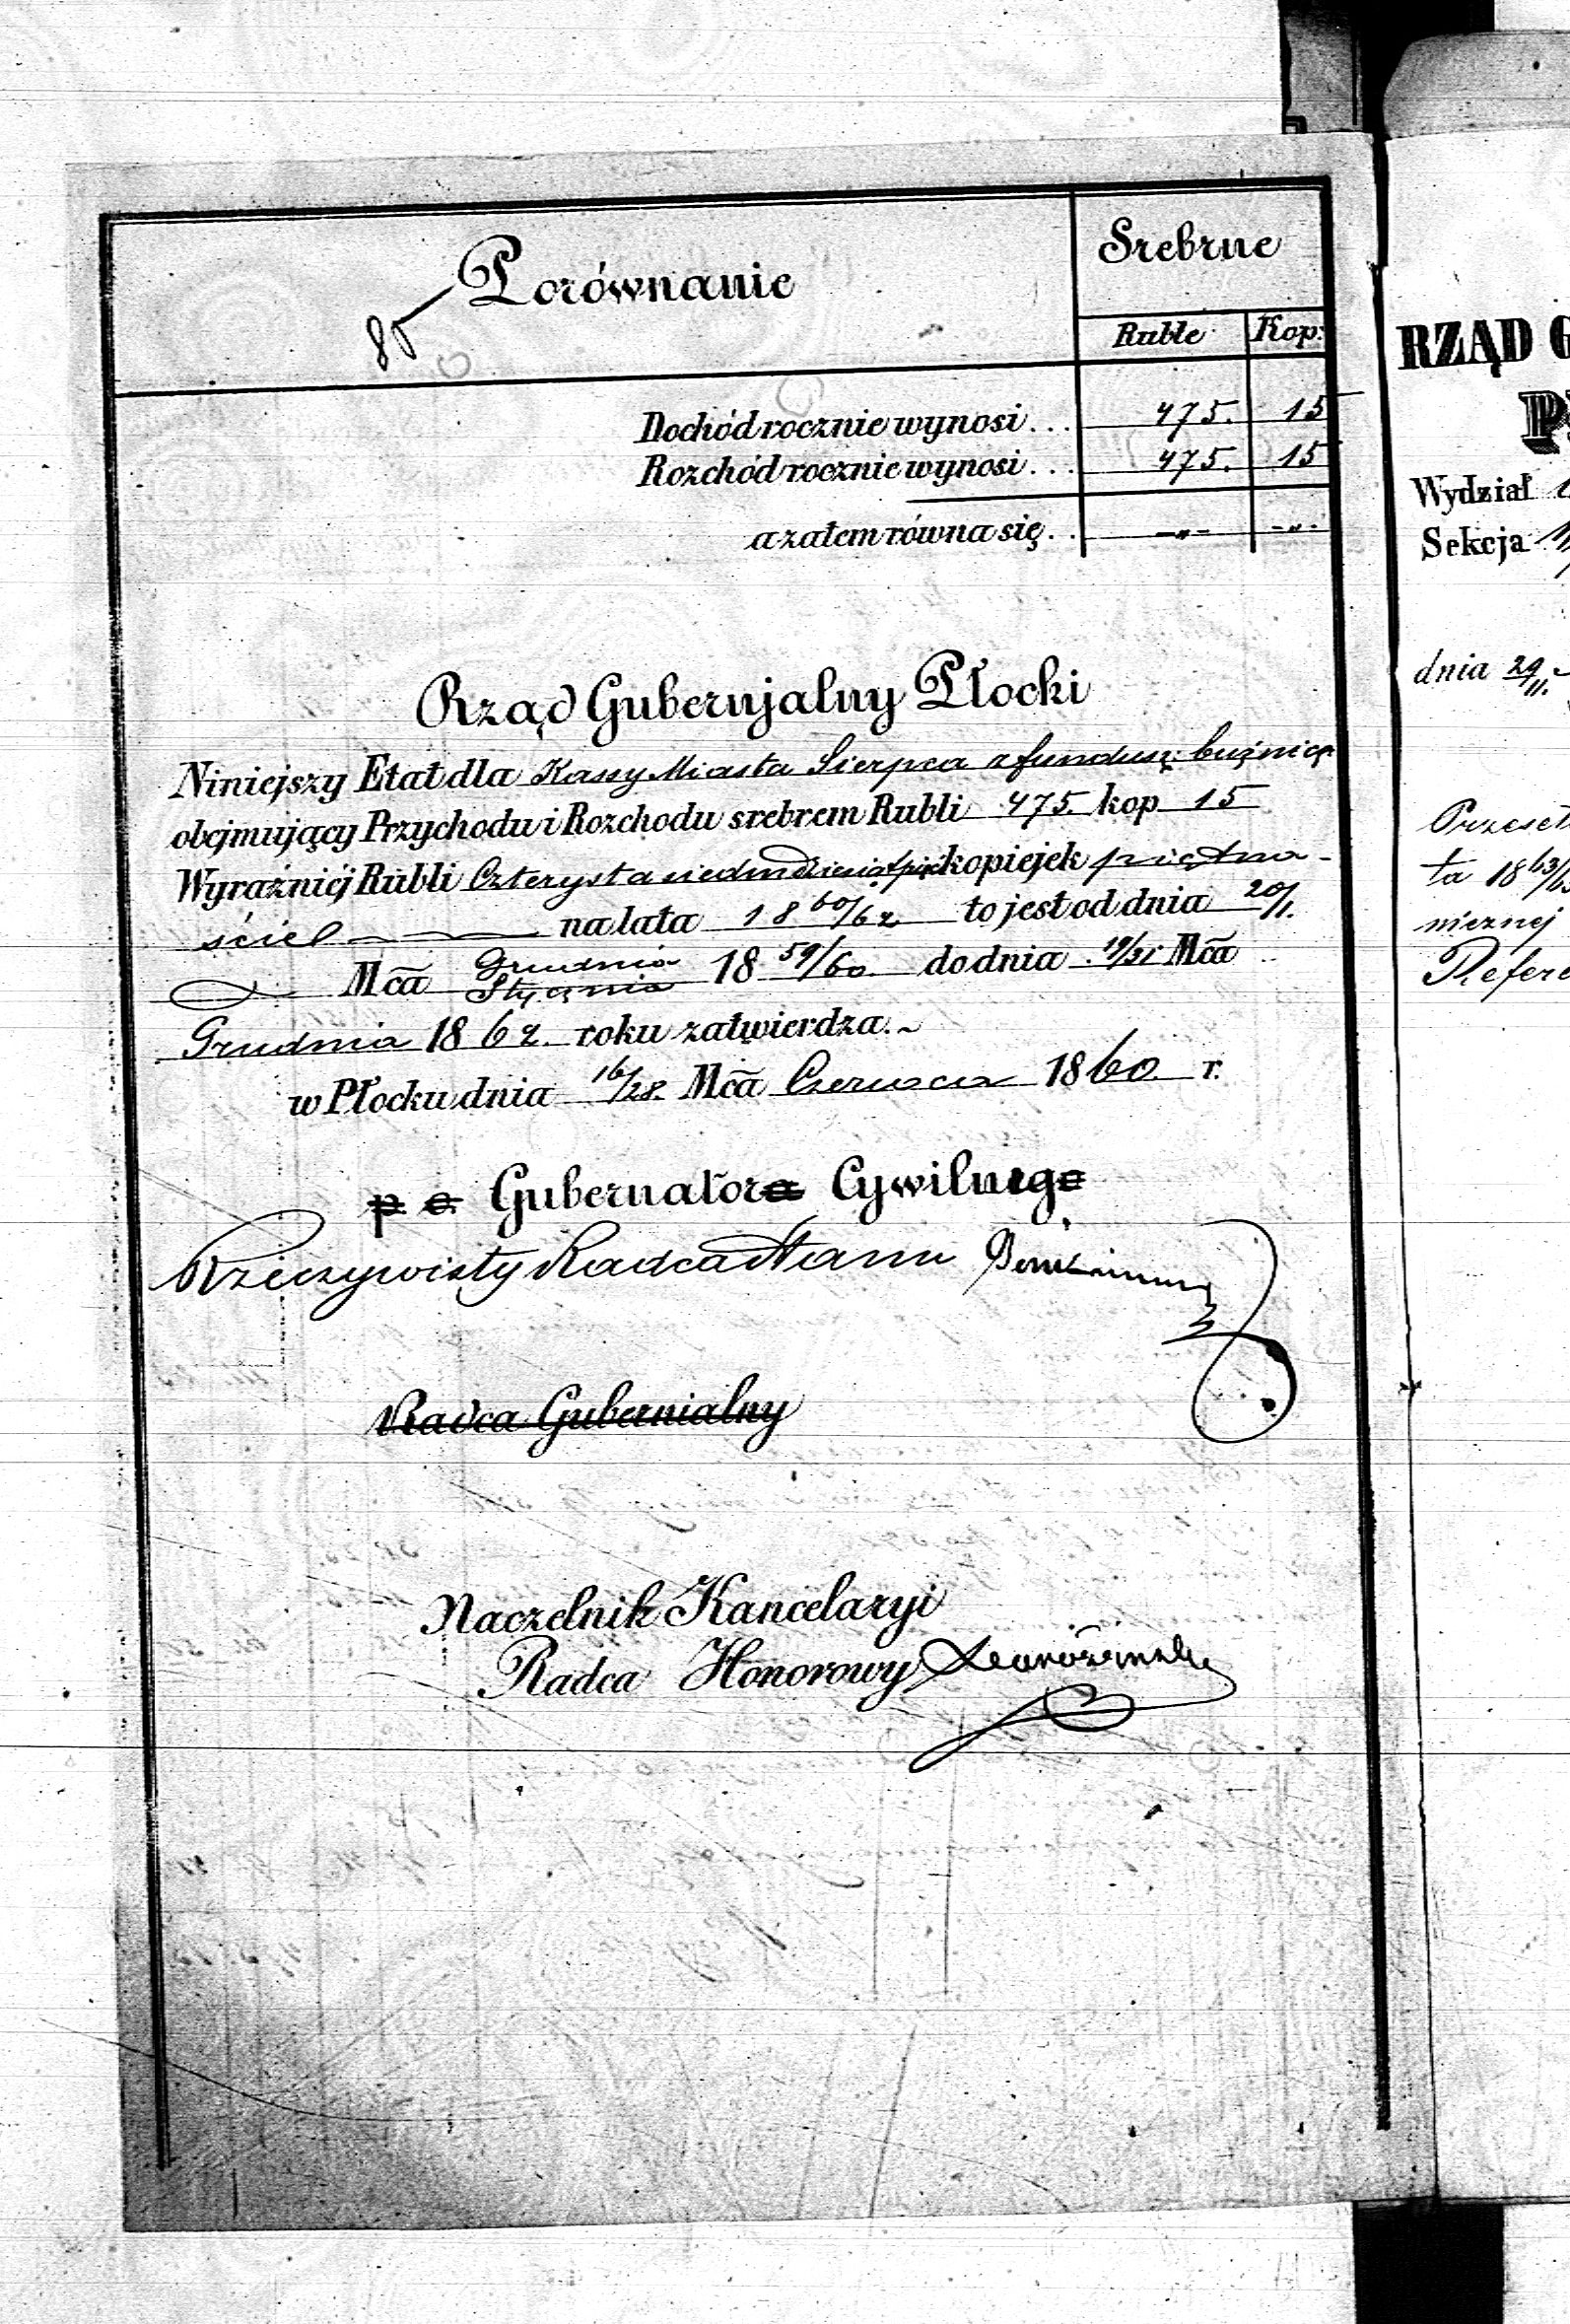 Porównanie
Srebrne
85
Ruble Kop:
Dochód rocznie wynosi... 475. 15
Rozchód rocznie wynosi... 475. 15
a zatem równa się.. -"- -"-
Rząd Gubernjalny Płocki
Niniejszy Etat dla Kassy Miasta Sierpca z fundusz: bużnicz:
obejmujący Przychodu i Rozchodu srebrem Rubli 475. kop 15
Wyraźniéj Rubli Czterysta siedmdziesiąt pięć kopiejek piętna-
ście na lata 1860/62 to jest od dnia 20/1.
Mca Grudnia Stycznia 1859/60. do dnia 19/31 Mca
Grudnia 1862. roku zatwierdza.~
w Płocku dnia 16/28. Mca Czerwca 1860. r.
p. o. Gubernatora Cywilnego
Rzeczywisty Radca Stanu
Radca Gubernialny
Naczelnik Kancelaryi
Radca Honorowy
RZĄD G
Wydział
Sekcja
dnia 29/11.
ta 1863/65
Refere